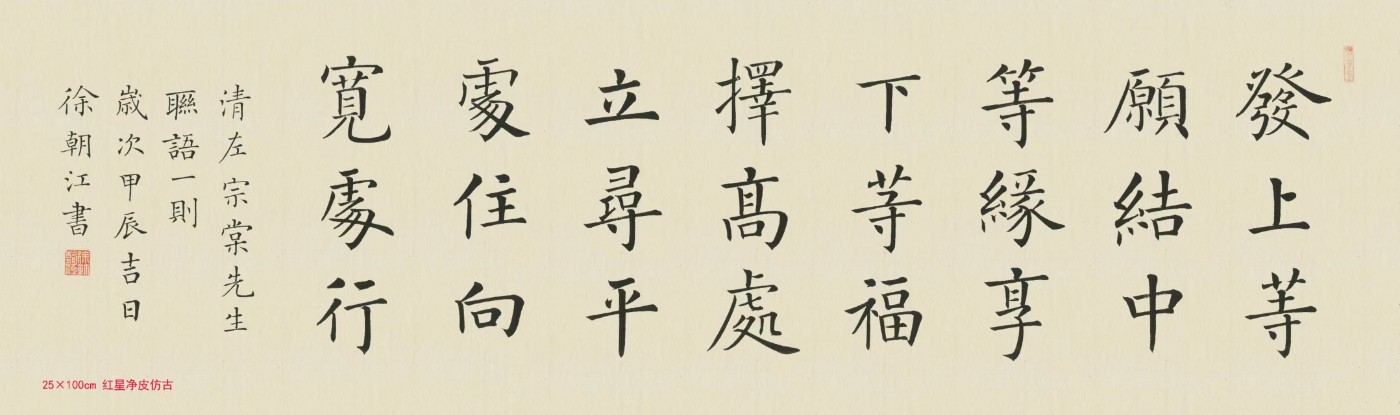 發上等
願結中
等緣享
下等福
擇髙處
立尋平
處住向
寬處行
清左宗棠先生
聯語一則
歲次甲辰吉日
徐朝江書
25×100cm 红星净皮仿古